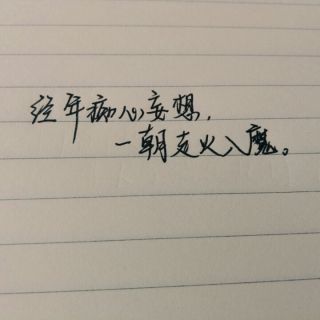 经年痴心妄想，
一朝走火入魔。